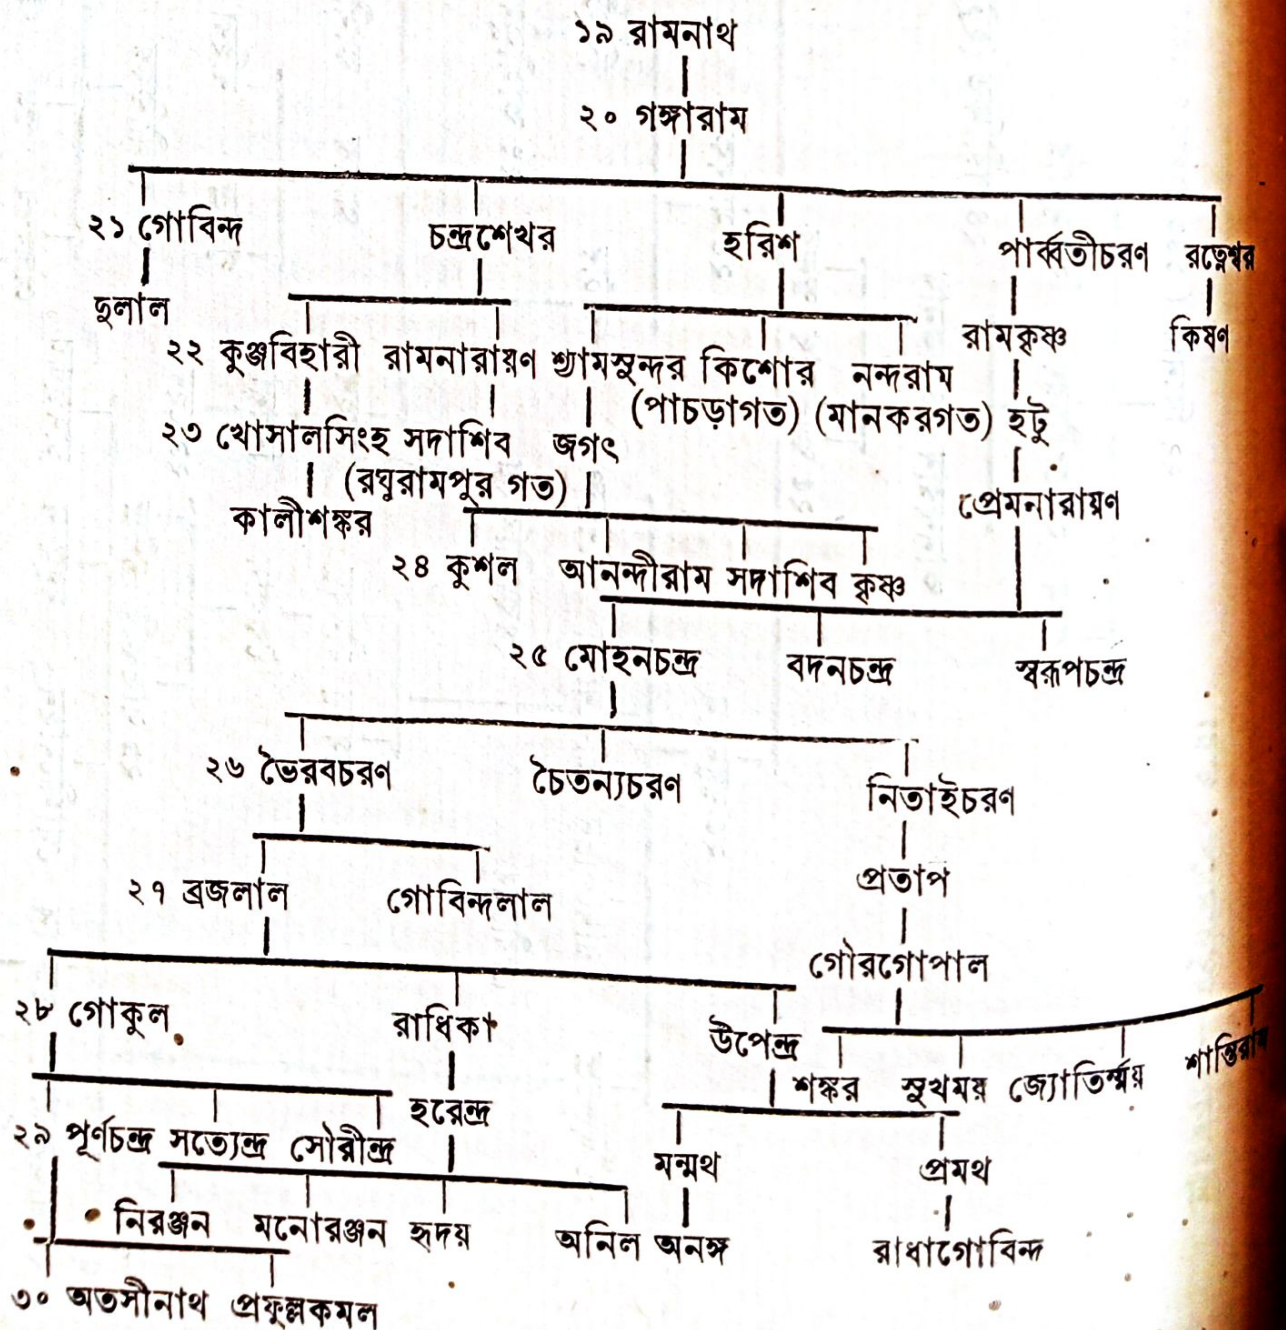 ১৯ রামনাথ
২০ গঙ্গারাম
২১ গোবিন্দ চন্দ্রশেখর হরিশ পার্ব্বতীচরণ রত্নেশ্বর
দুলাল রামকৃষ্ণ কিষণ
২২ কুঞ্জবিহারী রামনারায়ণ শ্যামসুন্দর কিশোর নন্দরাম
(পাচড়াগত) (মানকরগত) হটু
২৩ খোসালসিংহ সদাশিব জগৎ
(রঘুরামপুর গত)
কালীশঙ্কর প্রেমনারায়ণ
২৪ কুশল আনন্দীরাম সদাশিব কৃষ্ণ
২৫ মোহনচন্দ্র বদনচন্দ্র স্বরূপচন্দ্র
২৬ ভৈরবচরণ চৈতন্যচরণ নিতাইচরণ
২৭ ব্রজলাল গোবিন্দলাল প্রতাপ
গৌরগোপাল
২৮ গোকুল রাধিকা উপেন্দ্র
শঙ্কর সুখময় জ্যোতির্ম্ময় শান্তিরাম
হরেন্দ্র
২৯ পূর্ণচন্দ্র সত্যেন্দ্র সৌরীন্দ্র মন্মথ প্রমথ
নিরঞ্জন মনোরঞ্জন হৃদয় অনিল অনঙ্গ রাধাগোবিন্দ
৩০ অতসীনাথ প্রফুল্লকমল